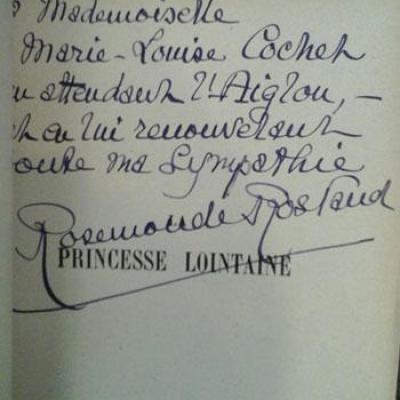 à Mademoiselle
Marie-Louise Cochet
en attendant l'Aiglon, —
et en lui renouvelant
toute ma sympathie
Rosemonde Rostand
PRINCESSE LOINTAINE